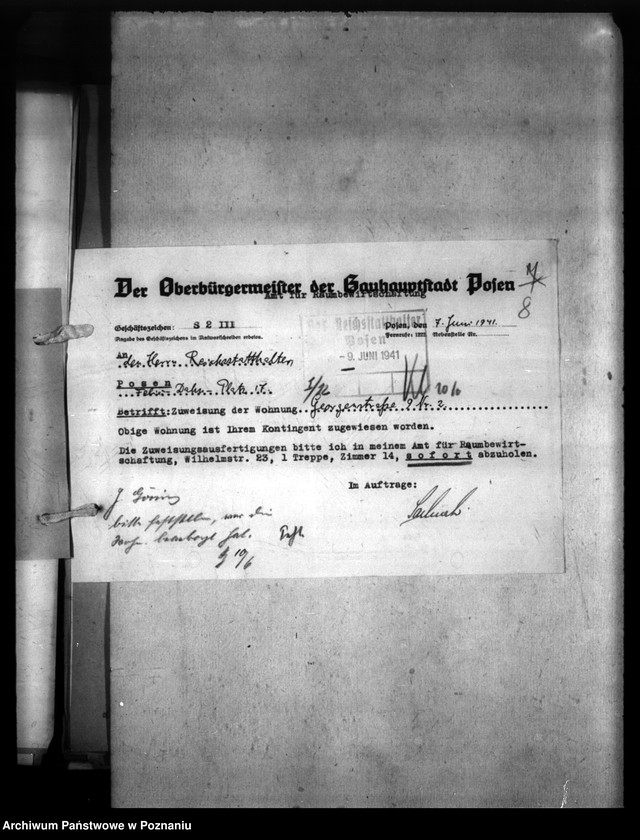 Der Oberbürgermeister der Gauhauptstadt Posen
Amt für Raumbewirtschaftung
8
Geschäftszeichen: S 2 III
Posen, den 7. Juni 1941.
Angabe des Geschäftszeichens in Antwortschreiben erbeten.
Fernruf: 1221. Nebenstelle Nr.
Der Reichsstatthalter
Posen
- 9. JUNI 1941
An
den Herrn Reichsstatthalter
Posen
Felix Dahn-Platz 17.
I/12
10/6
Betrifft: Zuweisung der Wohnung Georgenstraße 9 Nr. 2
Obige Wohnung ist Ihrem Kontingent zugewiesen worden.
Die Zuweisungsausfertigungen bitte ich in meinem Amt für Raumbewirt-
schaftung, Wilhelmstr. 23, 1 Treppe, Zimmer 14, sofort abzuholen.
Im Auftrage:
bitte feststellen, wer die
hat.
10/6
Archiwum Państwowe w Poznaniu